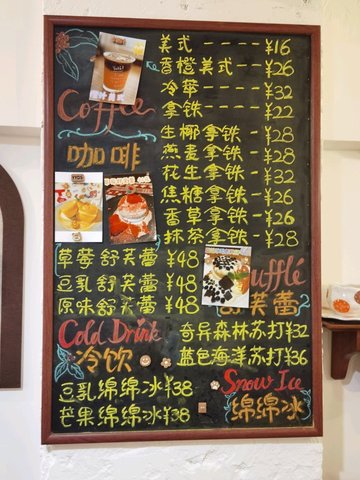 美式----¥16
香橙美式--¥26
冷萃----¥32
拿铁----¥22
Coffee
咖啡
生椰拿铁-¥28
燕麦拿铁-¥28
花生拿铁-¥32
焦糖拿铁-¥26
香草拿铁-¥26
抹茶拿铁-¥28
草莓舒芙蕾¥48
豆乳舒芙蕾¥48
原味舒芙蕾¥48
芙蕾
Cold Drink
冷饮
奇异森林苏打¥32
蓝色海洋苏打¥36
豆乳绵绵冰¥38
芒果绵绵冰¥38
Snow Ice
绵绵冰